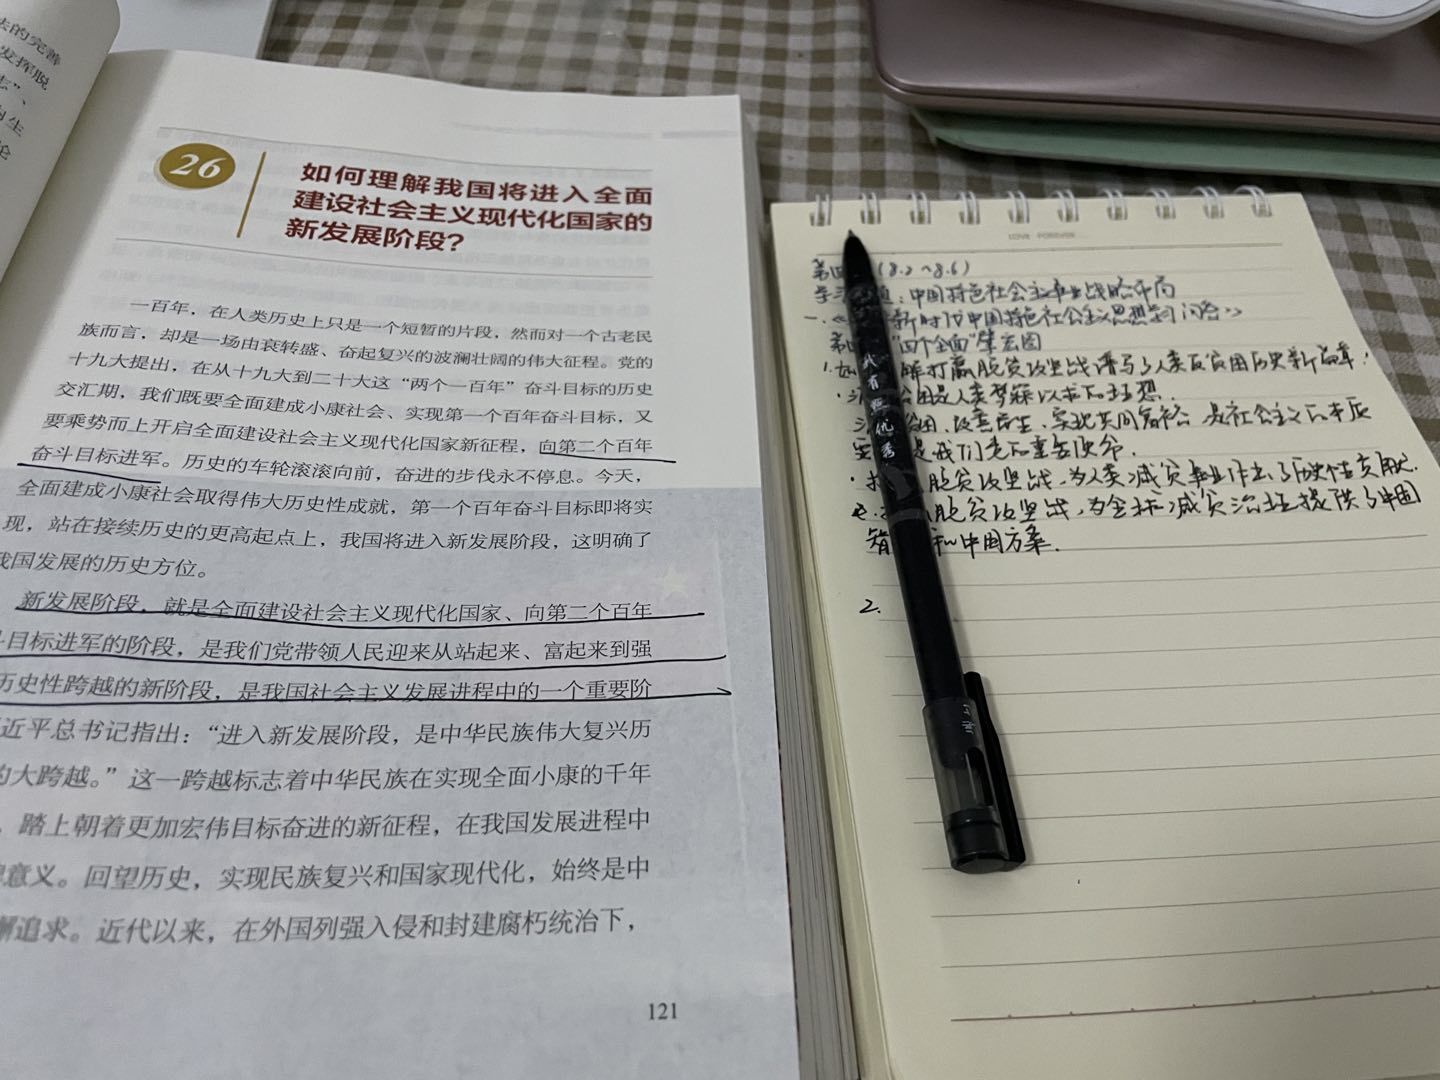 法的完善
发挥脱
志”、
向生
论
26
如何理解我国将进入全面
建设社会主义现代化国家的
新发展阶段?
一百年，在人类历史上只是一个短暂的片段，然而对一个古老民
族而言，却是一场由衰转盛、奋起复兴的波澜壮阔的伟大征程。党的
十九大提出，在从十九大到二十大这“两个一百年”奋斗目标的历史
交汇期，我们既要全面建成小康社会、实现第一个百年奋斗目标，又
要乘势而上开启全面建设社会主义现代化国家新征程，向第二个百年
奋斗目标进军。历史的车轮滚滚向前，奋进的步伐永不停息。今天，
全面建成小康社会取得伟大历史性成就，第一个百年奋斗目标即将实
现，站在接续历史的更高起点上，我国将进入新发展阶段，这明确了
我国发展的历史方位。
新发展阶段，就是全面建设社会主义现代化国家、向第二个百年
斗目标进军的阶段，是我们党带领人民迎来从站起来、富起来到强
历史性跨越的新阶段，是我国社会主义发展进程中的一个重要阶
近平总书记指出：“进入新发展阶段，是中华民族伟大复兴历
的大跨越。”这一跨越标志着中华民族在实现全面小康的千年
，踏上朝着更加宏伟目标奋进的新征程，在我国发展进程中
意义。回望历史，实现民族复兴和国家现代化，始终是中
懈追求。近代以来，在外国列强入侵和封建腐朽统治下，
121
LOVE FOREVER
第四 (8.2~8.6)
学习 题：中国特色社会主义事业战略布局
一.《 新时代中国特色社会主义思想学习问答》
第四 “四个全面”擘宏图
1. 如 解打赢脱贫攻坚战谱写了人类反贫困历史新篇章？
· 消 贫困是人类梦寐以求的理想.
贫困、改善民生、实现共同富裕，是社会主义的本质
要 是我们党的重要使命.
· 打 脱贫攻坚战，为人类减贫事业作出了历史性贡献.
脱贫攻坚战，为全球减贫治理提供了中国
智 和中国方案.
2.
我有点优秀